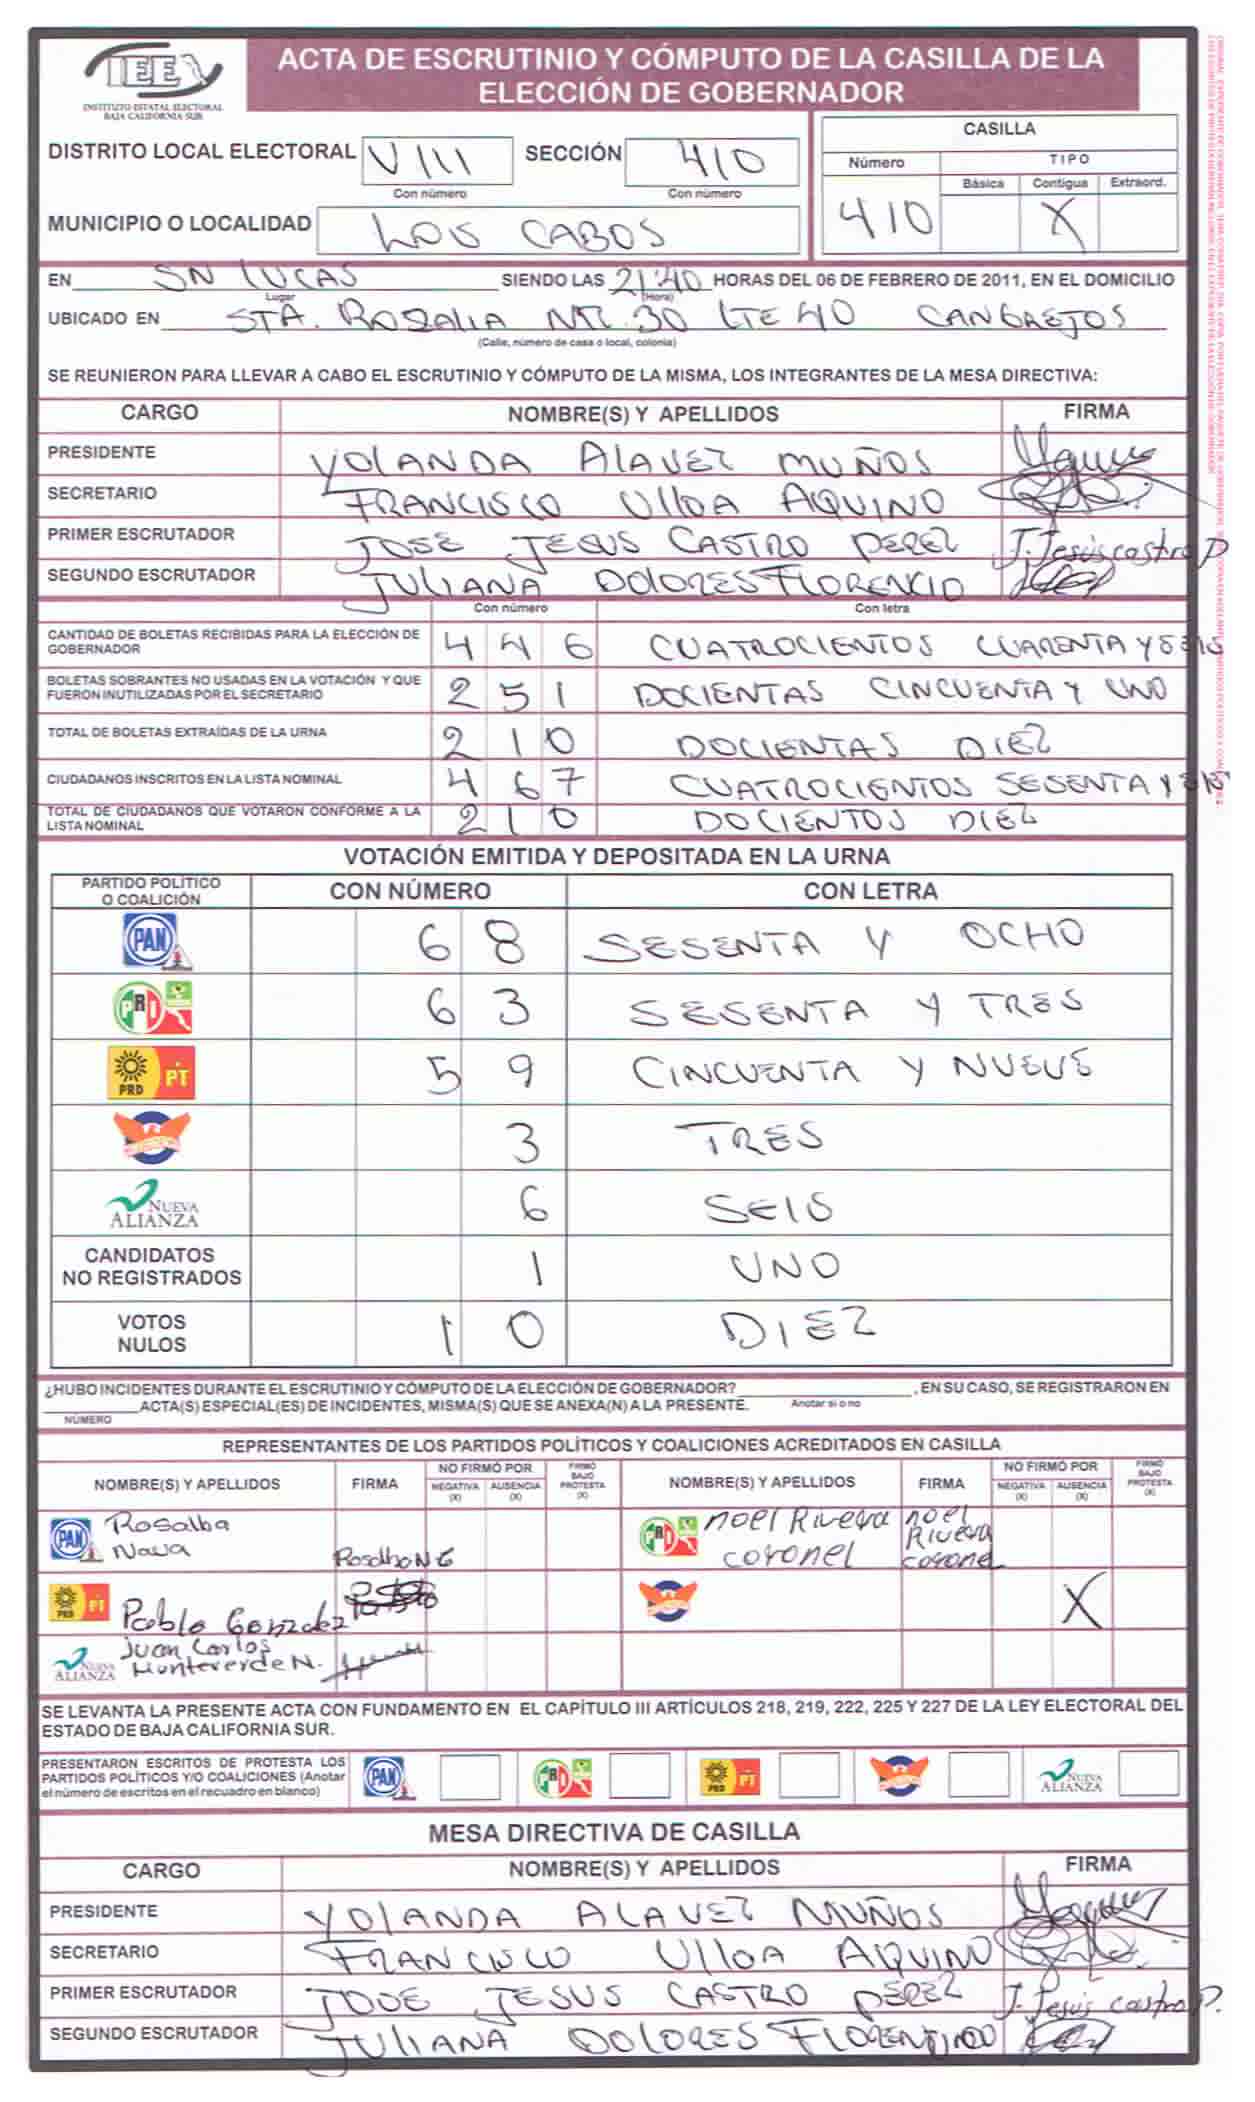 IEE
INSTITUTO ESTATAL ELECTORAL
BAJA CALIFORNIA SUR
ACTA DE ESCRUTINIO Y CÓMPUTO DE LA CASILLA DE LA
ELECCIÓN DE GOBERNADOR
DISTRITO LOCAL ELECTORAL VIII SECCIÓN 410
Con número Con número
MUNICIPIO O LOCALIDAD LOS CABOS
CASILLA
Número TIPO
Básica Contigua Extraord.
410 X
EN SN LUCAS SIENDO LAS 21:40 HORAS DEL 06 DE FEBRERO DE 2011, EN EL DOMICILIO
Lugar (Hora)
UBICADO EN STA. ROSALIA MZ. 30 LTE 40 CANGREJOS
(Calle, número de casa o local, colonia)
SE REUNIERON PARA LLEVAR A CABO EL ESCRUTINIO Y CÓMPUTO DE LA MISMA, LOS INTEGRANTES DE LA MESA DIRECTIVA:
CARGO NOMBRE(S) Y APELLIDOS FIRMA
PRESIDENTE YOLANDA ALAVEZ MUÑOS
SECRETARIO FRANCISCO ULLOA AQUINO
PRIMER ESCRUTADOR JOSE JESUS CASTRO PEREZ J. Jesús castro P
SEGUNDO ESCRUTADOR JULIANA DOLORES FLORENCIO
Con número Con letra
CANTIDAD DE BOLETAS RECIBIDAS PARA LA ELECCIÓN DE
GOBERNADOR 4 4 6 CUATROCIENTOS CUARENTA Y SEIS
BOLETAS SOBRANTES NO USADAS EN LA VOTACIÓN Y QUE
FUERON INUTILIZADAS POR EL SECRETARIO 2 5 1 DOCIENTAS CINCUENTA Y UNO
TOTAL DE BOLETAS EXTRAÍDAS DE LA URNA 2 1 0 DOCIENTAS DIEZ
CIUDADANOS INSCRITOS EN LA LISTA NOMINAL 4 6 7 CUATROCIENTOS SESENTA Y
TOTAL DE CIUDADANOS QUE VOTARON CONFORME A LA
LISTA NOMINAL 2 1 0 DOCIENTOS DIEZ
VOTACIÓN EMITIDA Y DEPOSITADA EN LA URNA
PARTIDO POLÍTICO
O COALICIÓN CON NÚMERO CON LETRA
PAN 6 8 SESENTA Y OCHO
PRI 6 3 SESENTA Y TRES
PRD PT 5 9 CINCUENTA Y NUEVE
3 TRES
NUEVA
ALIANZA 6 SEIS
CANDIDATOS
NO REGISTRADOS 1 UNO
VOTOS
NULOS 1 0 DIEZ
¿HUBO INCIDENTES DURANTE EL ESCRUTINIO Y CÓMPUTO DE LA ELECCIÓN DE GOBERNADOR? , EN SU CASO, SE REGISTRARON EN
ACTA(S) ESPECIAL(ES) DE INCIDENTES, MISMA(S) QUE SE ANEXA(N) A LA PRESENTE. Anotar si o no
NUMERO
REPRESENTANTES DE LOS PARTIDOS POLÍTICOS Y COALICIONES ACREDITADOS EN CASILLA
NOMBRE(S) Y APELLIDOS FIRMA NO FIRMÓ POR NEGATIVA (X) AUSENCIA (X) FIRMÓ BAJO PROTESTA (X) NOMBRE(S) Y APELLIDOS FIRMA NO FIRMÓ POR NEGATIVA (X) AUSENCIA (X) FIRMÓ BAJO PROTESTA (X)
PAN Rosalba
Nava Rosalba N G
PRI noel Rivera
coronel
noel
Rivera
coronel
PRD PT Pablo Gonzalez X
NUEVA
ALIANZA Juan Carlos
Monteverde N.
SE LEVANTA LA PRESENTE ACTA CON FUNDAMENTO EN EL CAPÍTULO III ARTÍCULOS 218, 219, 222, 225 Y 227 DE LA LEY ELECTORAL DEL
ESTADO DE BAJA CALIFORNIA SUR.
PRESENTARON ESCRITOS DE PROTESTA LOS
PARTIDOS POLÍTICOS Y/O COALICIONES (Anotar
el número de escritos en el recuadro en blanco)
PAN PRI PRD PT NUEVA ALIANZA
MESA DIRECTIVA DE CASILLA
CARGO NOMBRE(S) Y APELLIDOS FIRMA
PRESIDENTE YOLANDA ALAVEZ MUÑOS
SECRETARIO FRANCISCO ULLOA AQUINO
PRIMER ESCRUTADOR JOSE JESUS CASTRO PEREZ J. Jesús castro P.
SEGUNDO ESCRUTADOR JULIANA DOLORES